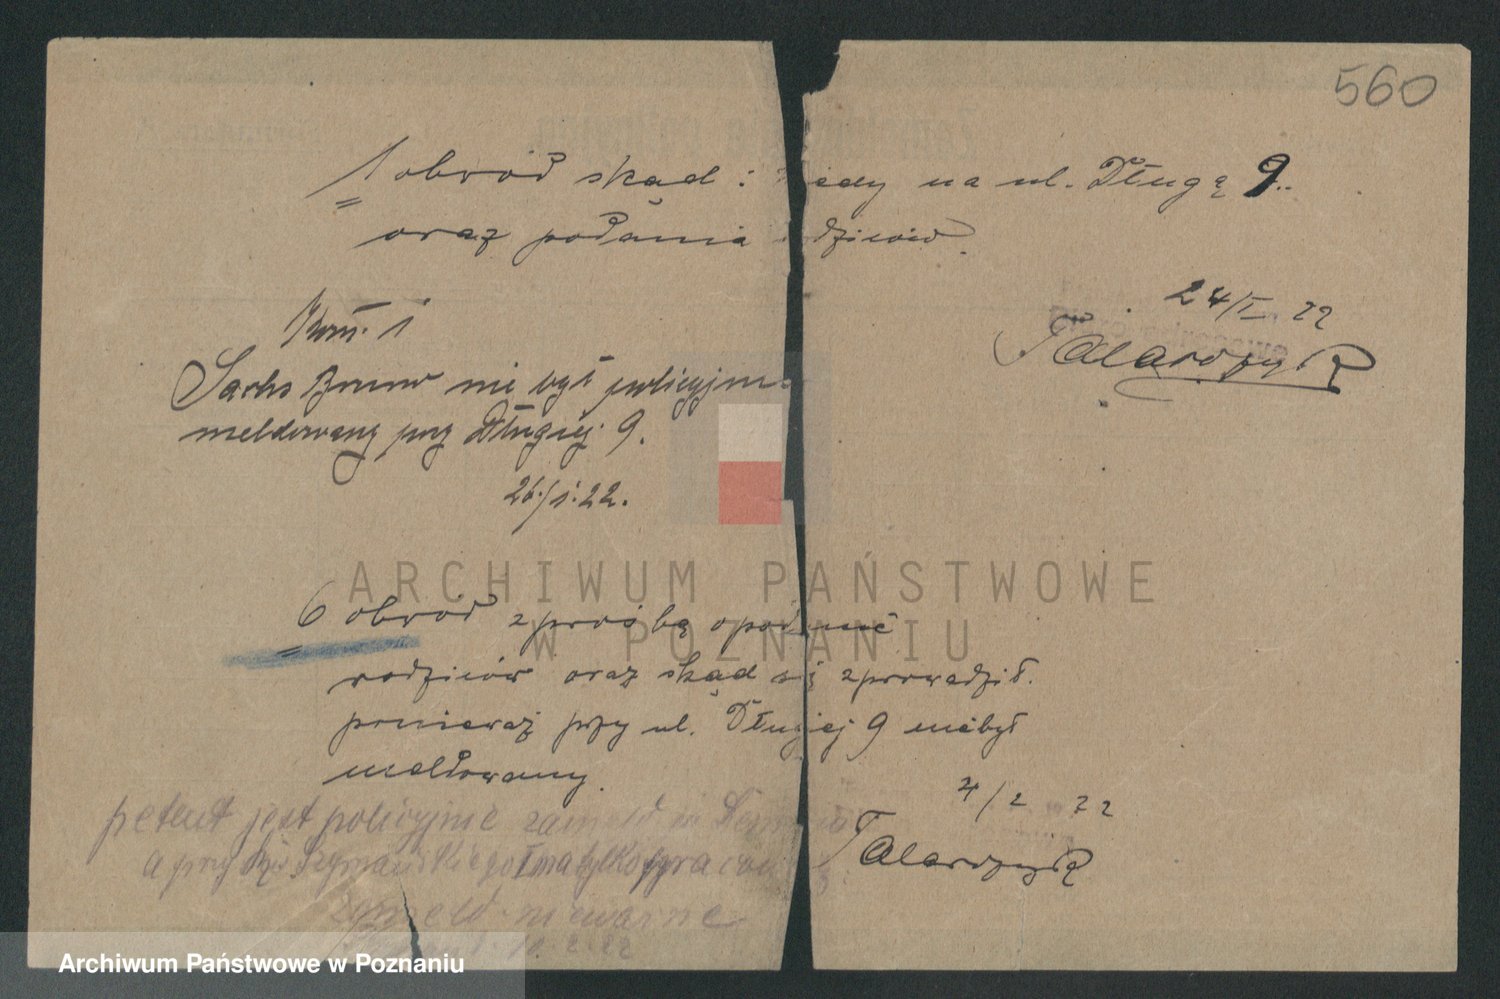 560
1 obród skąd i kiedy na ul. Długą 9.
oraz podania rodziców.
24/I 22
Talarczyk
Kom. 1
Sachs Bruno nie był policyjnie
meldowany przy Długiej 9.
26./1.22.
6 obród z prośbą o podanie
rodziców oraz skąd się zprowadził.
ponieważ przy ul. Długiej 9 nie był
meldowany
4/2 22
Talarczyk
petent jest policyjnie zameld w
a przy Szymańskiego 1 ma tylko
zameld. nieważne
10.2.22
ARCHIWUM PAŃSTWOWE
W POZNANIU
Archiwum Państwowe w Poznaniu